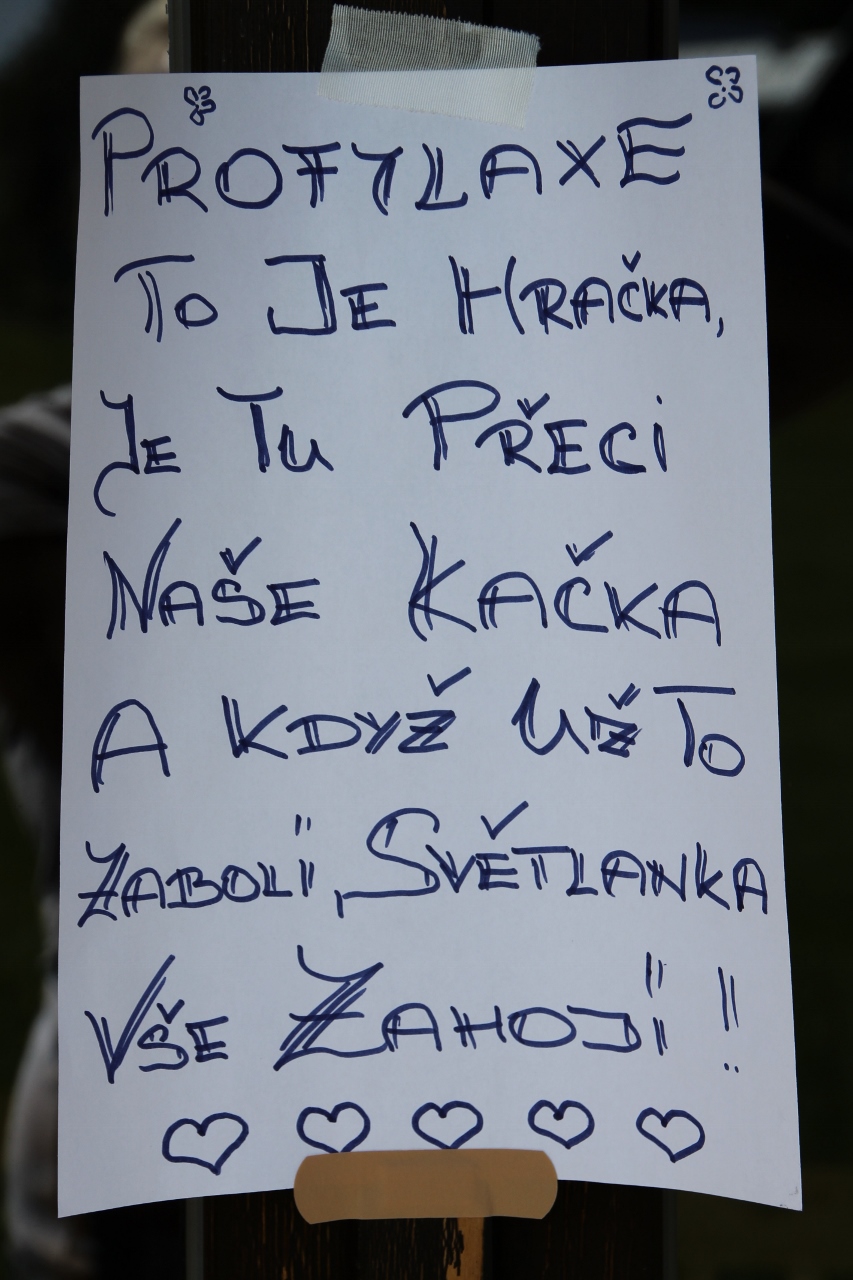 PROFYLAXE
TO JE HRAČKA,
JE TU PŘECI
NAŠE KAČKA
A KDYŽ UŽ TO
ZABOLÍ, SVĚTLANKA
VŠE ZAHOJÍ !!